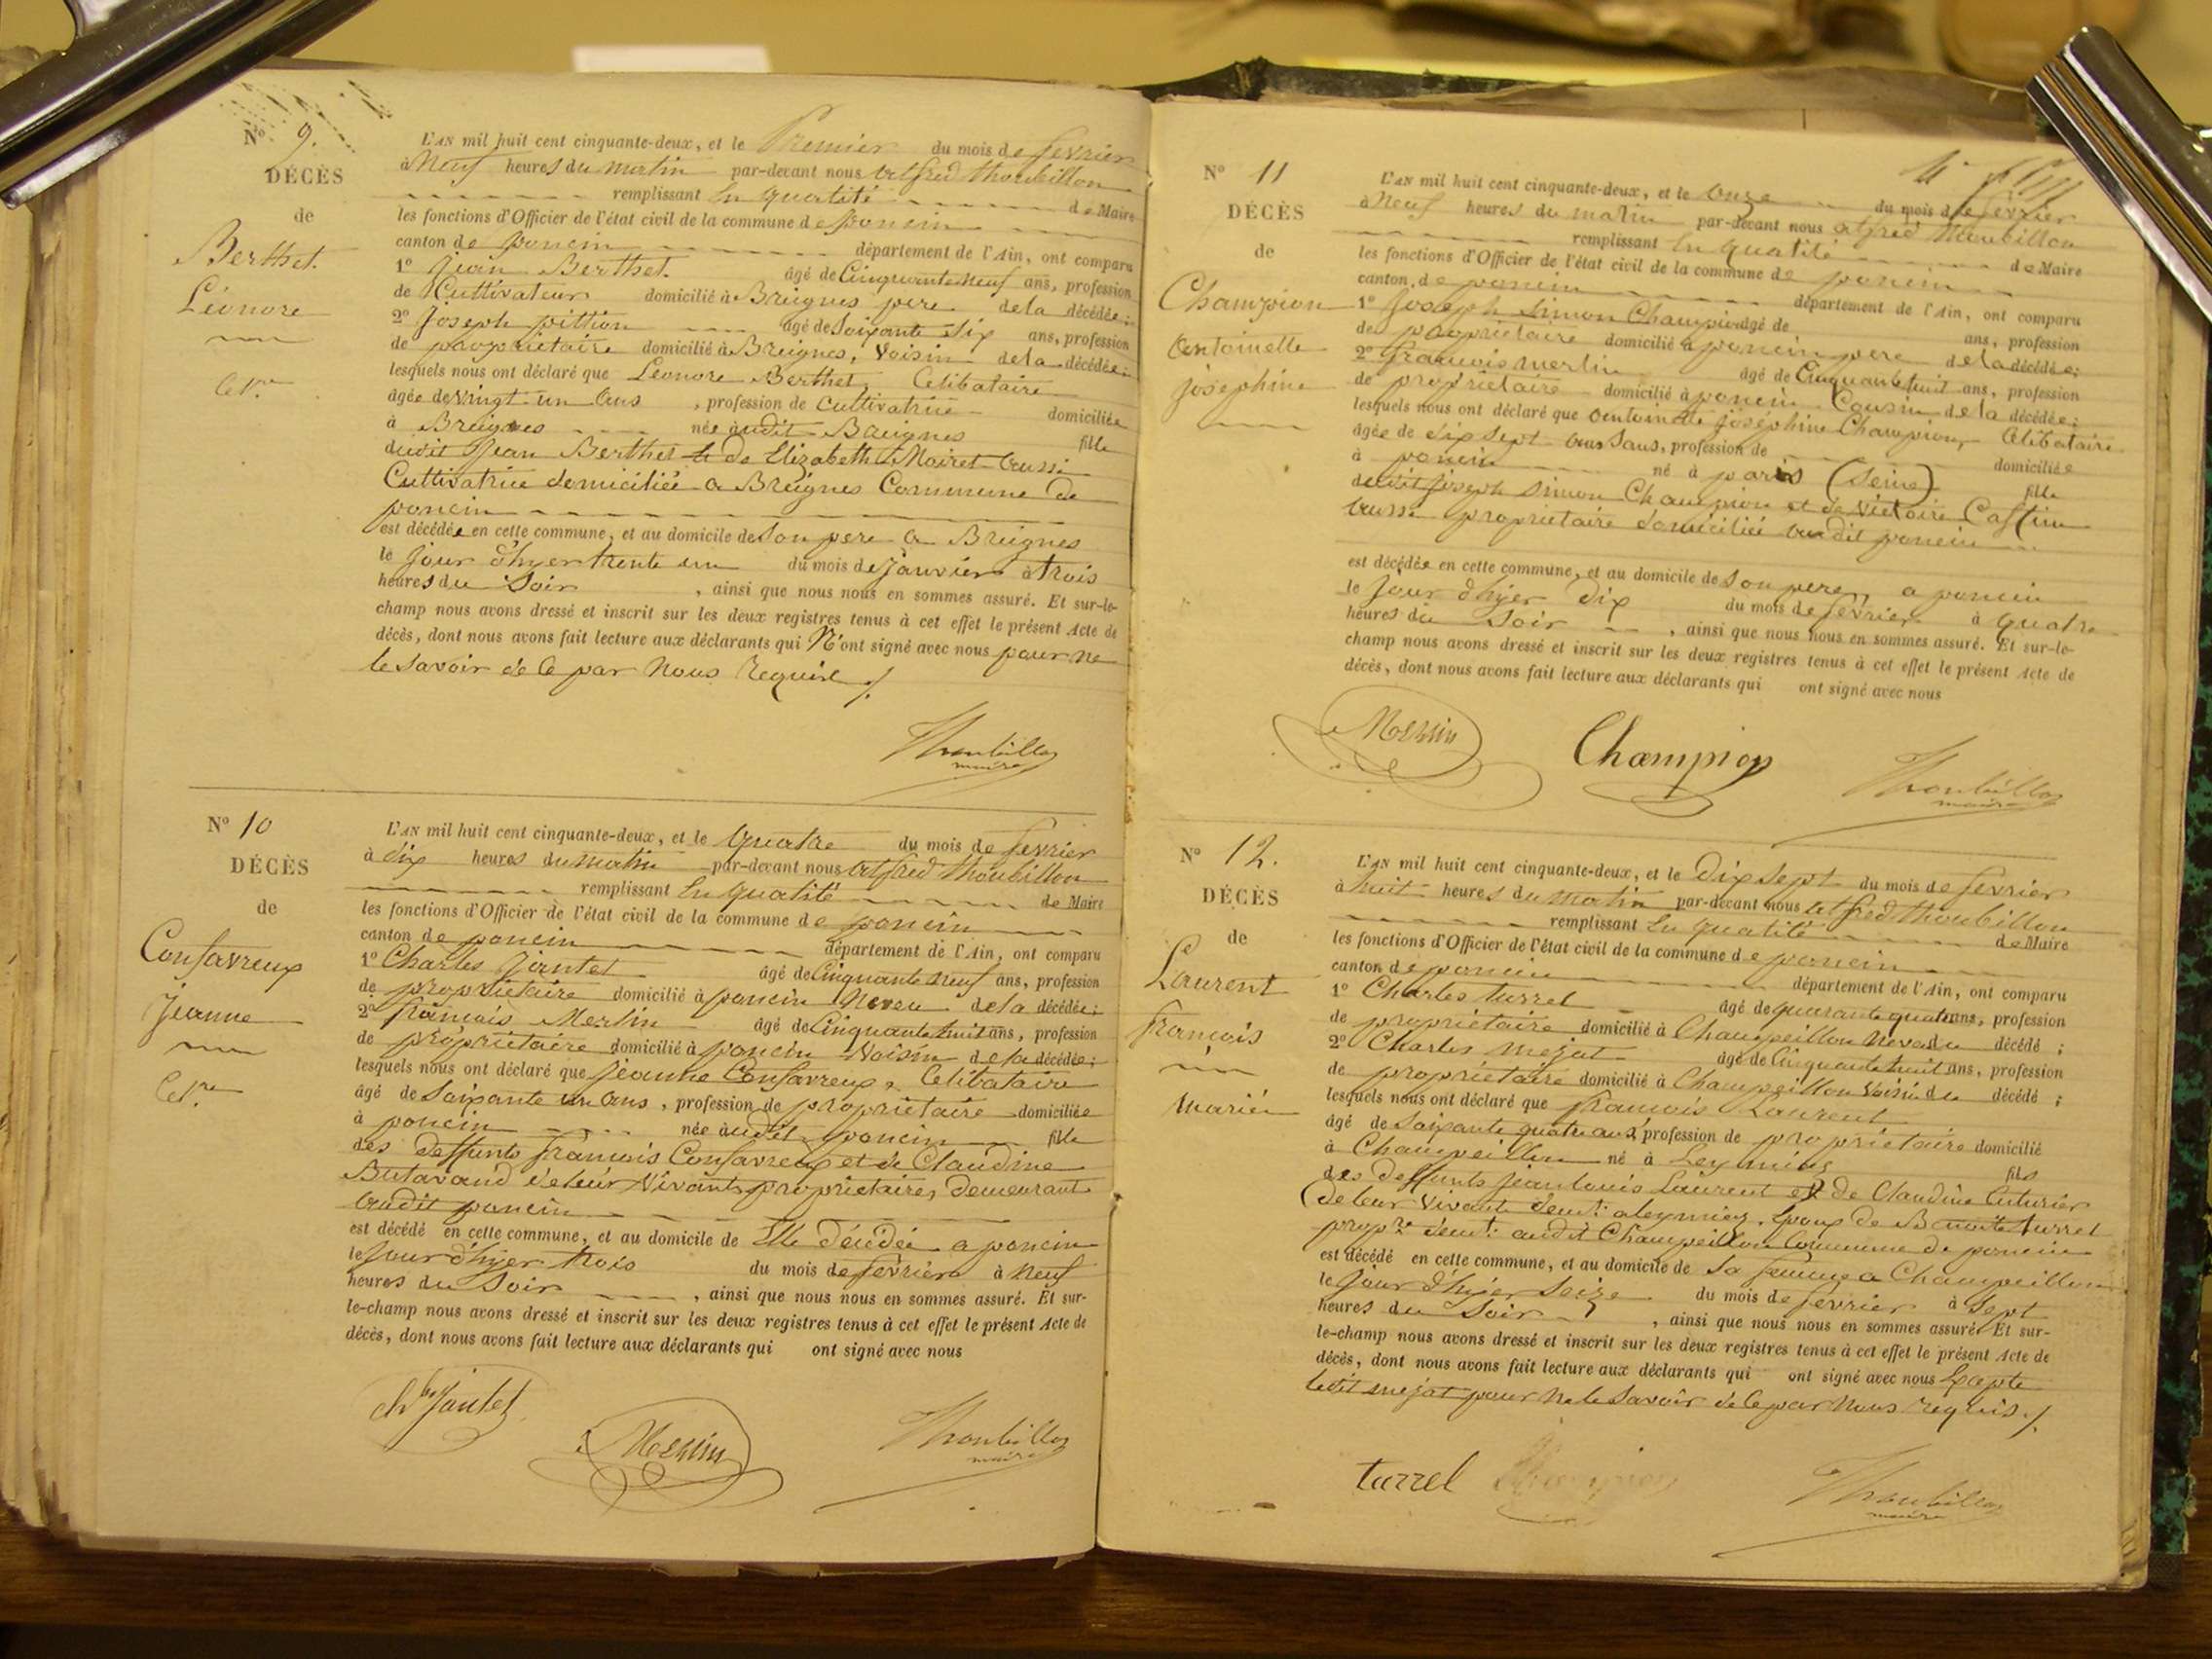 Nº 9.
DÉCÈS
de
Berthet
Léonore
Cel.re
L'AN mil huit cent cinquante-deux, et le Premier du mois de fevrier
à Neuf heures du matin par-devant nous alfred thoubillon
remplissant En qualité de Maire
les fonctions d'Officier de l'état civil de la commune de poncin
canton de poncin département de l'Ain, ont comparu
1º Jean Berthet âgé de Cinquante neuf ans, profession
de Cultivateur domicilié à Breignes pere de la décédée;
2º Joseph pittion âgé de Soixante Six ans, profession
de proprietaire domicilié à Breignes, Voisin de la décédée;
lesquels nous ont déclaré que Léonore Berthet, Celibataire
âgée de vingt un ans, profession de cultivatrice domiciliée
à Breignes née audit Breignes fille
dudit Jean Berthet et de Elizabeth Moiret aussi
Cultivatrice domiciliée a Breignes Commune de
poncin
est décédée en cette commune, et au domicile de Son pere a Breignes
le jour d'hyer trente un du mois de janvier à trois
heures du Soir, ainsi que nous nous en sommes assuré. Et sur-le-
champ nous avons dressé et inscrit sur les deux registres tenus à cet effet le présent Acte de
décès, dont nous avons fait lecture aux déclarants qui N'ont signé avec nous pour ne
le savoir de ce par Nous Requis ./.
Thoubillon
maire
Nº 10
DÉCÈS
de
Confavreux
Jeanne
Cel.re
L'AN mil huit cent cinquante-deux, et le quatre du mois de fevrier
à dix heures du matin par-devant nous alfred thoubillon
remplissant En qualité de Maire
les fonctions d'Officier de l'état civil de la commune de poncin
canton de poncin département de l'Ain, ont comparu
1º Charles Jantet âgé de Cinquante neuf ans, profession
de proprietaire domicilié à poncin Neveu de la décédée;
2º françois Merlin âgé de Cinquante huit ans, profession
de proprietaire domicilié à poncin Voisin de la décédée;
lesquels nous ont déclaré que Jeanne Confavreux, Celibataire
âgé de Soixante un ans, profession de proprietaire domiciliée
à poncin née audit poncin fille
des deffunts françois Confavreux et de Claudine
Butavand de leur Vivants proprietaires demeurant
audit poncin
est décédé en cette commune, et au domicile de Elle Décédée a poncin
le Jour d'hyer trois du mois de fevrier à Neuf
heures du Soir, ainsi que nous nous en sommes assuré. Et sur-
le-champ nous avons dressé et inscrit sur les deux registres tenus à cet effet le présent Acte de
décès, dont nous avons fait lecture aux déclarants qui ont signé avec nous
Jantet
Merlin
Thoubillon
maire
Nº 11
DÉCÈS
de
Champion
Antoinette
josephine
L'AN mil huit cent cinquante-deux, et le onze du mois de fevrier
à Neuf heures du matin par-devant nous alfred thoubillon
remplissant En qualité de Maire
les fonctions d'Officier de l'état civil de la commune de poncin
canton de poncin département de l'Ain, ont comparu
1º Joseph Simon Champion âgé de ans, profession
de proprietaire domicilié à poncin pere de la décédée;
2º françois merlin âgé de Cinquante huit ans, profession
de proprietaire domicilié à poncin Cousin de la décédée;
lesquels nous ont déclaré que antoinette Joséphine Champion, Celibataire
âgée de dix sept ans Sans, profession de domiciliée
à poncin né à paris (Seine) fille
dudit Joseph Simon Champion et de Victoire
aussi proprietaire domiciliée audit poncin
est décédée en cette commune, et au domicile de Son pere, a poncin
le Jour d'hyer Dix du mois de fevrier à quatre
heures du Soir, ainsi que nous nous en sommes assuré. Et sur-le-
champ nous avons dressé et inscrit sur les deux registres tenus à cet effet le présent Acte de
décès, dont nous avons fait lecture aux déclarants qui ont signé avec nous
Merlin
Champion
Thoubillon
maire
Nº 12.
DÉCÈS
de
Laurent
françois
marié
L'AN mil huit cent cinquante-deux, et le Dix Sept du mois de fevrier
à huit heures du matin par-devant nous alfred thoubillon
remplissant En qualité de Maire
les fonctions d'Officier de l'état civil de la commune de poncin
canton de poncin département de l'Ain, ont comparu
1º Charles turrel âgé de quarante quatre ans, profession
de proprietaire domicilié à Champeillon Neveu du décédé;
2º Charles mejat âgé de Cinquante huit ans, profession
de proprietaire domicilié à Champeillon Voisin du décédé;
lesquels nous ont déclaré que françois Laurent
âgé de Soixante quatre ans, profession de proprietaire domicilié
à Champeillon né à Leymiac fils
des deffunts Jean louis Laurent et de Claudine Cuturier
de leur Vivants demt. a Epoux de Benoite turrel
propre demt. audit Champeillon Commune de poncin
est décédé en cette commune, et au domicile de Sa femme a Champeillon
le Jour d'hyer Seize du mois de fevrier à Sept
heures du Soir, ainsi que nous nous en sommes assuré. Et sur-
le-champ nous avons dressé et inscrit sur les deux registres tenus à cet effet le présent Acte de
décès, dont nous avons fait lecture aux déclarants qui ont signé avec nous Excepté
ledit mejat pour ne le Savoir de ce par Nous requis ./.
turrel
Thoubillon
maire